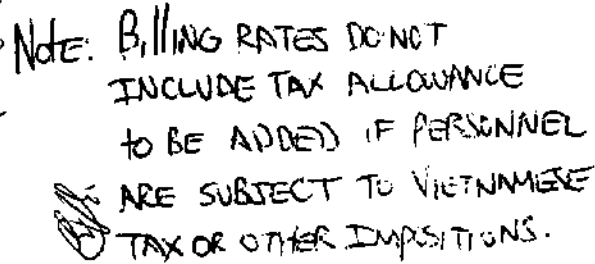 Note: Billing RATES DO NOT
INCLUDE TAX ALLOWANCE
to BE ADDED IF PERSONNEL
ARE SUBJECT TO VIETNAMESE
TAX OR OTHER IMPOSITIONS.